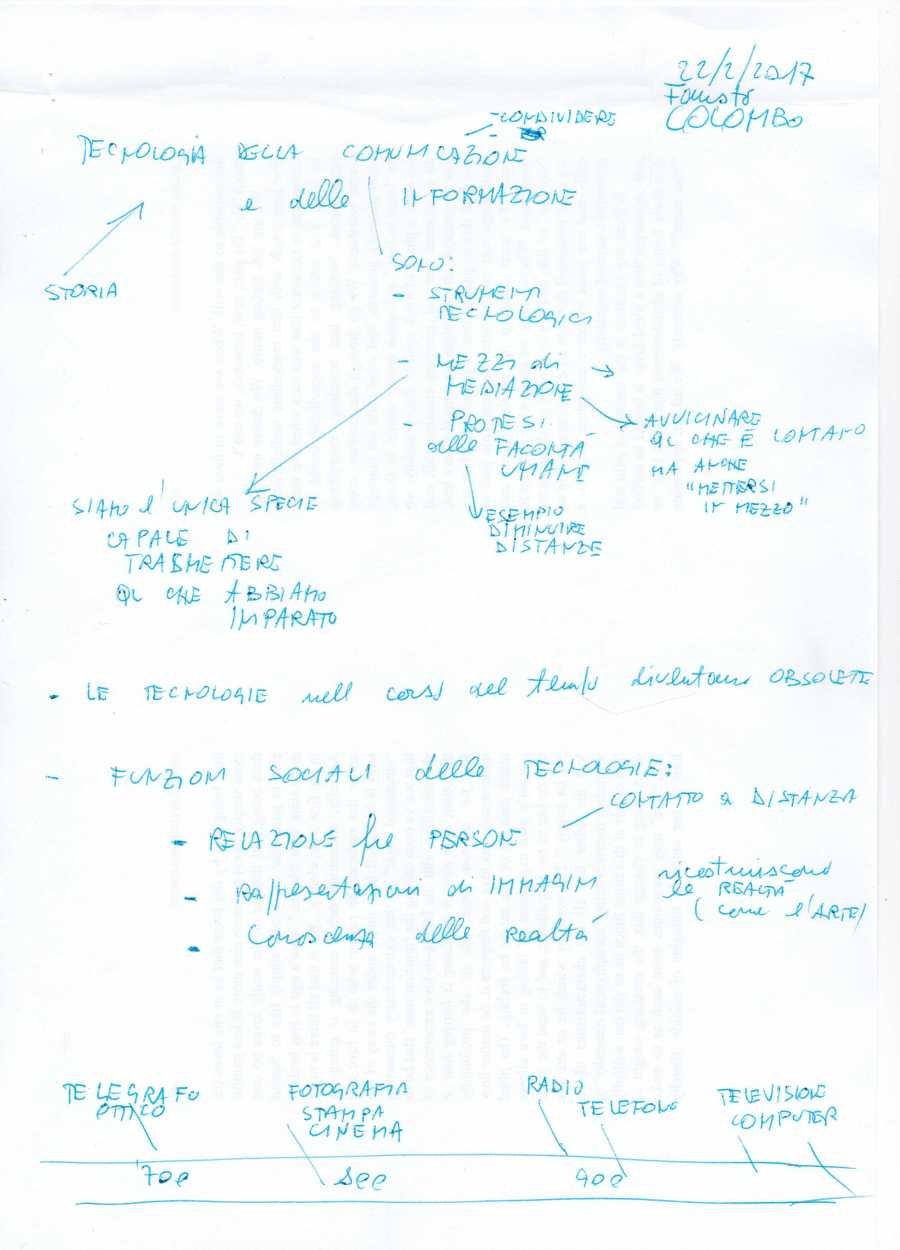 22/2/2017
Fausto
COLOMBO
- CONDIVIDERE
-
TECNOLOGIA DELLA COMUNICAZIONE
e delle INFORMAZIONE
STORIA
SONO:
- STRUMENTI
TECNOLOGICI
- MEZZI di
MEDIAZIONE
- PROTESI
delle FACOLTÀ
UMANE
AVVICINARE
QL CHE È LONTANO
MA ANCHE
"METTERSI
IN MEZZO"
ESEMPIO
DIMINUIRE
DISTANZE
SIAMO l'UNICA SPECIE
CAPACE DI
TRASMETTERE
QL CHE ABBIAMO
IMPARATO
- LE TECNOLOGIE nell corso del tempo diventano OBSOLETE
- FUNZIONI SOCIALI delle TECNOLOGIE:
CONTATTO a DISTANZA
- RELAZIONE fre PERSONE
- Rappresentazioni di IMMAGINI
ricostruiscono
le REALTÀ
(come l'ARTE)
- Conoscenza delle Realtà
TELEGRAFO
OTTICO
FOTOGRAFIA
STAMPA
CINEMA
RADIO
TELEFONO
TELEVISIONE
COMPUTER